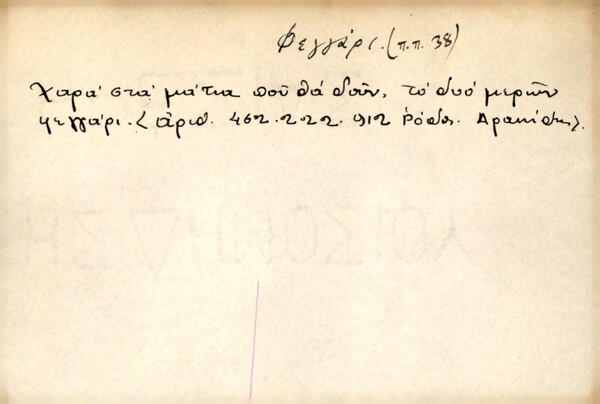 Φεγγάρι. (π.π. 38)
Χαρά στα μάτια ποῦ θά δοῦν, τό δυό μερῶν
φεγγάρι. < ἀριθ. 462. 222. 912 Ρόδος.